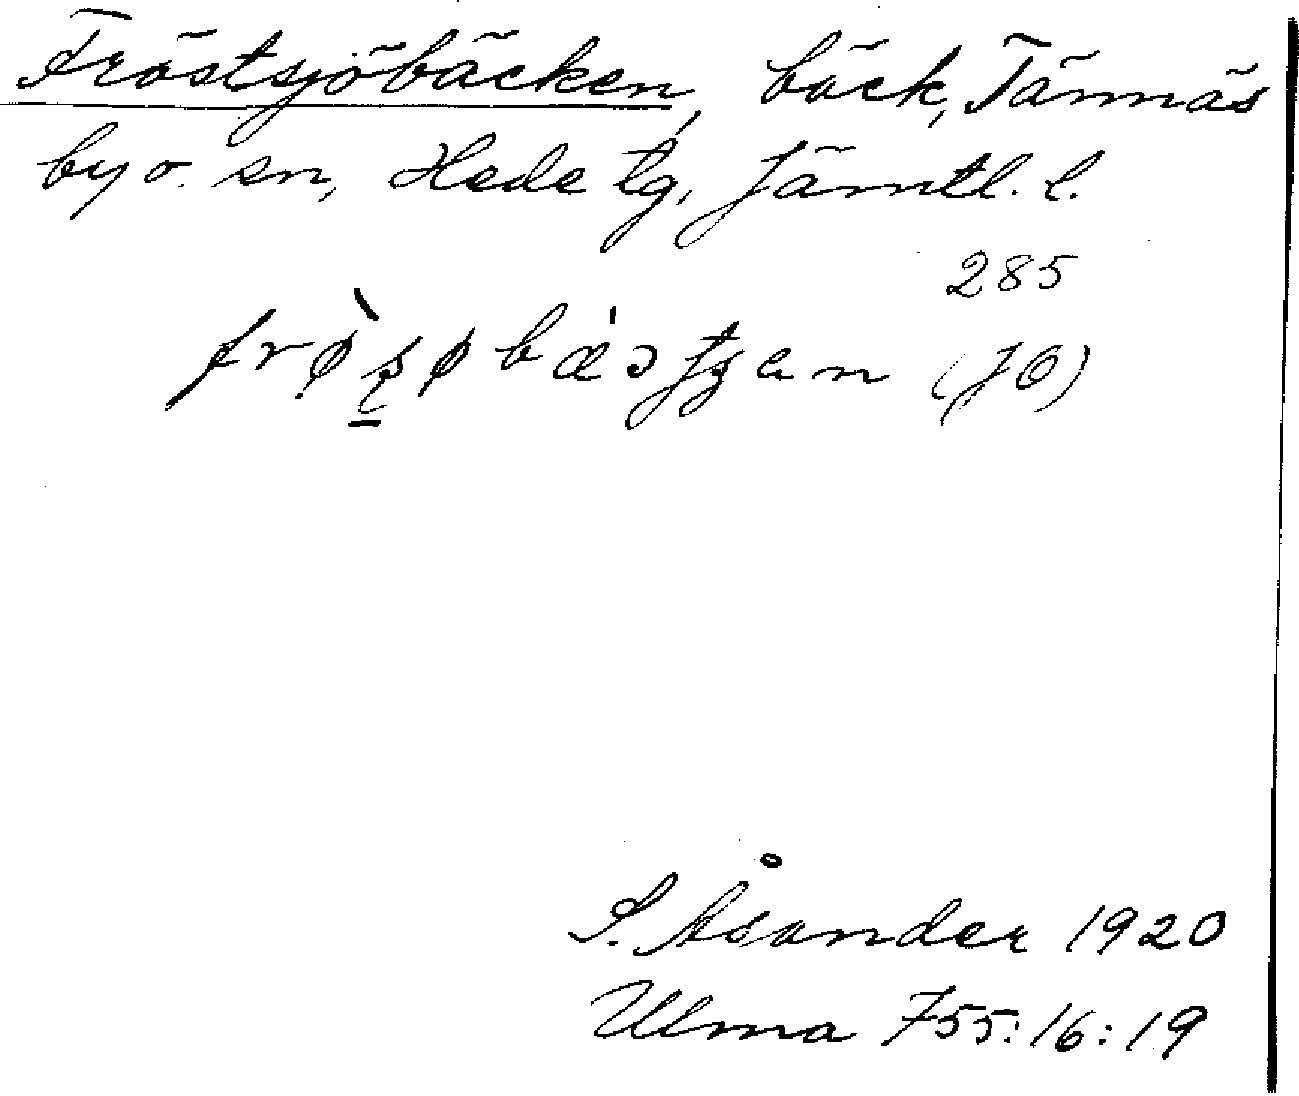 Fröstsjöbäcken, bäck, Tännäs
by o. sn, Hede tg, Jämtl. l.
285
(JO)
S. Åsander 1920
Ulma 755:16:19